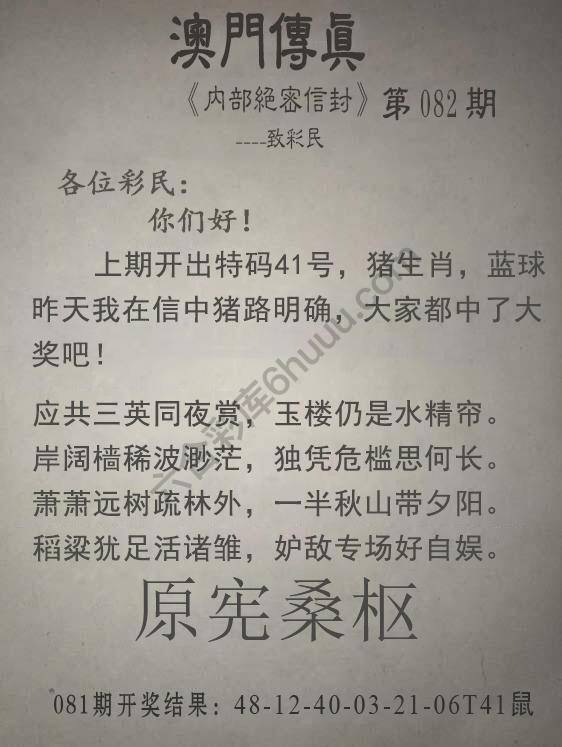 澳門傳眞
《内部絕密信封》第082期
----致彩民
各位彩民：
你们好！
上期开出特码41号，猪生肖，蓝球
昨天我在信中猪路明确，大家都中了大
奖吧！
应共三英同夜赏，玉楼仍是水精帘。
岸阔樯稀波渺茫，独凭危槛思何长。
萧萧远树疏林外，一半秋山带夕阳。
稻粱犹足活诸雏，妒敌专场好自娱。
原宪桑枢
081期开奖结果：48-12-40-03-21-06T41鼠
六合彩库6huuu.com